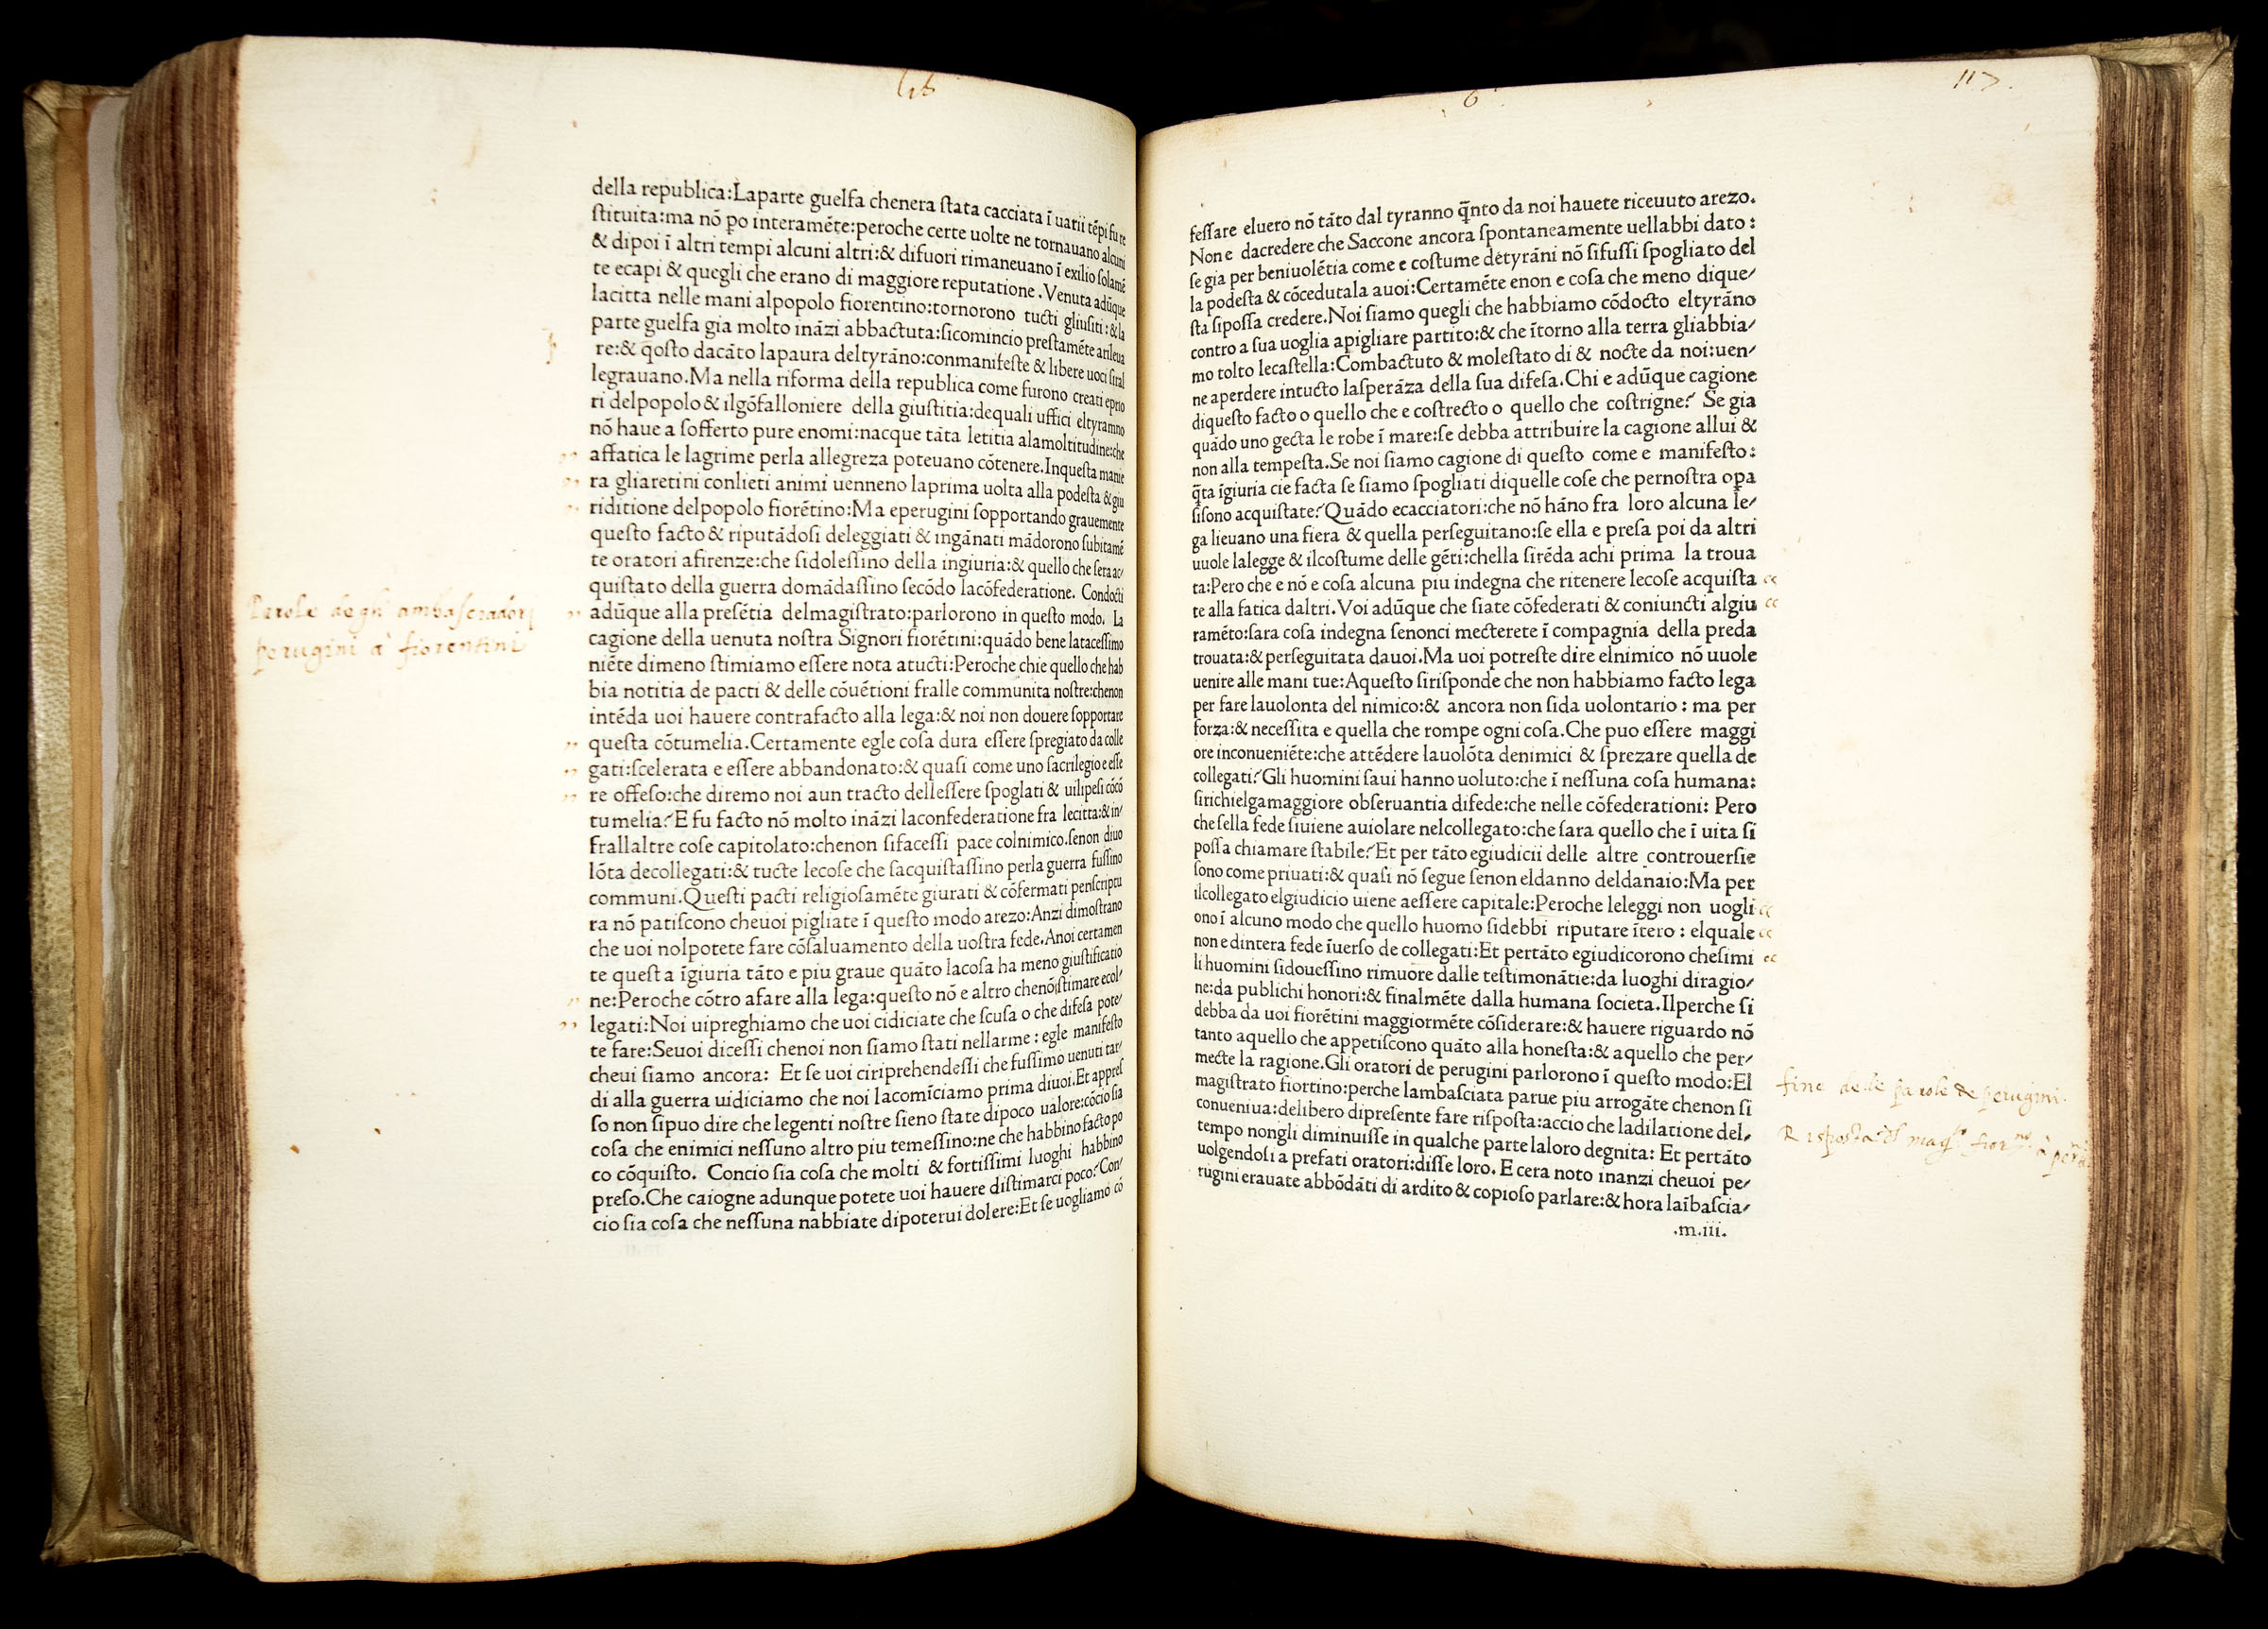 lib
della republica:Laparte guelfa chenera ſtata cacciata ĩ uarii tẽpi fu re
ſtituita:ma nõ po interamẽte:peroche certe uolte ne tornauano alcuni
& dipoi ĩ altri tempi alcuni altri:& difuori rimaneuano ĩ exilio ſolamẽ
te ecapi & quegli che erano di maggiore reputatione.Venuta adũque
lacitta nelle mani alpopolo fiorentino:tornorono tucti gliuſiti:& la
parte guelfa gia molto inãzi abbactuta:ſicomincio preſtamẽte arileua
re:& qoſto dacãto lapaura deltyrãno:conmanifeſte & libere uoci ſiral
legrauano.Ma nella riforma della republica come furono creati eprio
ri delpopolo & ilgõfalloniere della giuſtitia:dequali uffici eltyramno
nõ haue a ſofferto pure enomi:nacque tãta letitia alamoltitudine:che
affatica le lagrime perla allegreza poteuano cõtenere.Inqueſta manie
ra gliaretini conlieti animi uenneno laprima uolta alla podeſta & giu
riditione delpopolo fiorẽtino:Ma eperugini ſopportando grauemente
queſto facto & riputãdoſi deleggiati & ingãnati mãdorono ſubitamẽ
te oratori afirenze:che ſidoleſſino della ingiuria:& quello che ſera ac/
quiſtato della guerra domãdaſſino ſecõdo lacõfederatione. Condocti
Parole degli ambasciadori
perugini à fiorentini
adũque alla preſẽtia delmagiſtrato:parlorono in queſto modo. La
cagione della uenuta noſtra Signori fiorẽtini:quãdo bene lataceſſimo
niẽte dimeno ſtimiamo eſſere nota atucti:Peroche chie quello che hab
bia notitia de pacti & delle cõuẽtioni fralle communita noſtre:chenon
intẽda uoi hauere contrafacto alla lega:& noi non douere ſopportare
queſta cõtumelia.Certamente egle coſa dura eſſere ſpregiato da colle
gati:ſcelerata e eſſere abbandonato:& quaſi come uno ſacrilegio e eſſe
re offeſo:che diremo noi aun tracto delleſſere ſpoglati & uilipeſi cõcõ
tumelia? E fu facto nõ molto inãzi laconfederatione fra lecitta:& in/
frallaltre coſe capitolato:chenon ſifaceſſi pace colnimico.ſenon diuo
lõta decollegati:& tucte lecoſe che ſacquiſtaſſino perla guerra fuſſino
communi.Queſti pacti religioſamẽte giurati & cõfermati perſcriptu
ra nõ patiſcono cheuoi pigliate ĩ queſto modo arezo:Anzi dimoſtrano
che uoi nolpotete fare cõſaluamento della uoſtra fede.Anoi certamen
te queſt a ĩgiuria tãto e piu graue quãto lacoſa ha meno giuſtificatio
ne:Peroche cõtro afare alla lega:queſto nõ e altro chenõſtimare ecol/
legati:Noi uipreghiamo che uoi cidiciate che ſcuſa o che difeſa pote/
te fare:Seuoi diceſſi chenoi non ſiamo ſtati nellarme : egle manifeſto
cheui ſiamo ancora: Et ſe uoi ciriprehendeſſi che fuſſimo uenuti tar/
di alla guerra uidiciamo che noi lacomĩciamo prima diuoi.Et appreſ
ſo non ſipuo dire che legenti noſtre ſieno ſtate dipoco ualore:cõcio ſia
coſa che enimici neſſuno altro piu temeſſino:ne che habbino facto po
co cõquiſto. Concio ſia coſa che molti & fortiſſimi luoghi habbino
preſo.Che caiogne adunque potete uoi hauere diſtimarci poco? Con/
cio ſia coſa che neſſuna nabbiate dipoterui dolere:Et ſe uogliamo cõ
6
117.
feſſare eluero nõ tãto dal tyranno q̃nto da noi hauete riceuuto arezo.
Non e dacredere che Saccone ancora ſpontaneamente uellabbi dato :
ſe gia per beniuolẽtia come e coſtume detyrãni nõ ſifuſſi ſpogliato del
la podeſta & cõcedutala auoi:Certamẽte enon e coſa che meno dique/
ſta ſipoſſa credere.Noi ſiamo quegli che habbiamo cõdocto eltyrãno
contro a ſua uoglia apigliare partito:& che ĩtorno alla terra gliabbia/
mo tolto lecaſtella:Combactuto & moleſtato di & nocte da noi:uen/
ne aperdere intucto laſperãza della ſua difeſa.Chi e adũque cagione
diqueſto facto o quello che e coſtrecto o quello che coſtrigne? Se gia
quãdo uno gecta le robe ĩ mare:ſe debba attribuire la cagione allui &
non alla tempeſta.Se noi ſiamo cagione di queſto come e manifeſto :
q̃ta ĩgiuria cie facta ſe ſiamo ſpogliati diquelle coſe che pernoſtra opa
ſiſono acquiſtate? Quãdo ecacciatori:che nõ hãno fra loro alcuna le/
ga lieuano una fiera & quella perſeguitano:ſe ella e preſa poi da altri
uuole lalegge & ilcoſtume delle gẽti:chella ſirẽda achi prima la troua
ta:Pero che e nõ e coſa alcuna piu indegna che ritenere lecoſe acquiſta
te alla fatica daltri.Voi adũque che ſiate cõfederati & coniuncti algiu
ramẽto:ſara coſa indegna ſenonci mecterete ĩ compagnia della preda
trouata:& perſeguitata dauoi.Ma uoi potreſte dire elnimico nõ uuole
uenire alle mani tue:Aqueſto ſiriſponde che non habbiamo facto lega
per fare lauolonta del nimico:& ancora non ſida uolontario : ma per
forza:& neceſſita e quella che rompe ogni coſa.Che puo eſſere maggi
ore inconueniẽte:che attẽdere lauolõta denimici & ſprezare quella de
collegati? Gli huomini ſaui hanno uoluto:che ĩ neſſuna coſa humana:
ſirichielgamaggiore obſeruantia difede:che nelle cõfederationi: Pero
che ſella fede ſiuiene auiolare nelcollegato:che ſara quello che ĩ uita ſi
poſſa chiamare ſtabile? Et per tãto egiudicii delle altre controuerſie
ſono come priuati:& quaſi nõ ſegue ſenon eldanno deldanaio:Ma per
ilcollegato elgiudicio uiene aeſſere capitale:Peroche leleggi non uogli
ono ĩ alcuno modo che quello huomo ſidebbi riputare ĩtero : elquale
non e dintera fede ĩuerſo de collegati:Et pertãto egiudicorono cheſimi
li huomini ſidoueſſino rimuore dalle teſtimonãtie:da luoghi diragio/
ne:da publichi honori:& finalmẽte dalla humana ſocieta.Ilperche ſi
debba da uoi fiorẽtini maggiormẽte cõſiderare:& hauere riguardo nõ
tanto aquello che appetiſcono quãto alla honeſta:& aquello che per/
mecte la ragione.Gli oratori de perugini parlorono ĩ queſto modo:El
fine delle parole de perugini.
magiſtrato fiortino:perche lambaſciata parue piu arrogãte chenon ſi
conueniua:delibero dipreſente fare riſpoſta:accio che ladilatione del/
Risposta
tempo nongli diminuiſſe in qualche parte laloro degnita: Et pertãto
uolgendoſi a prefati oratori:diſſe loro. E cera noto inanzi cheuoi pe/
rugini erauate abbõdãti di ardito & copioſo parlare:& hora laĩbaſcia/
.m.iii.